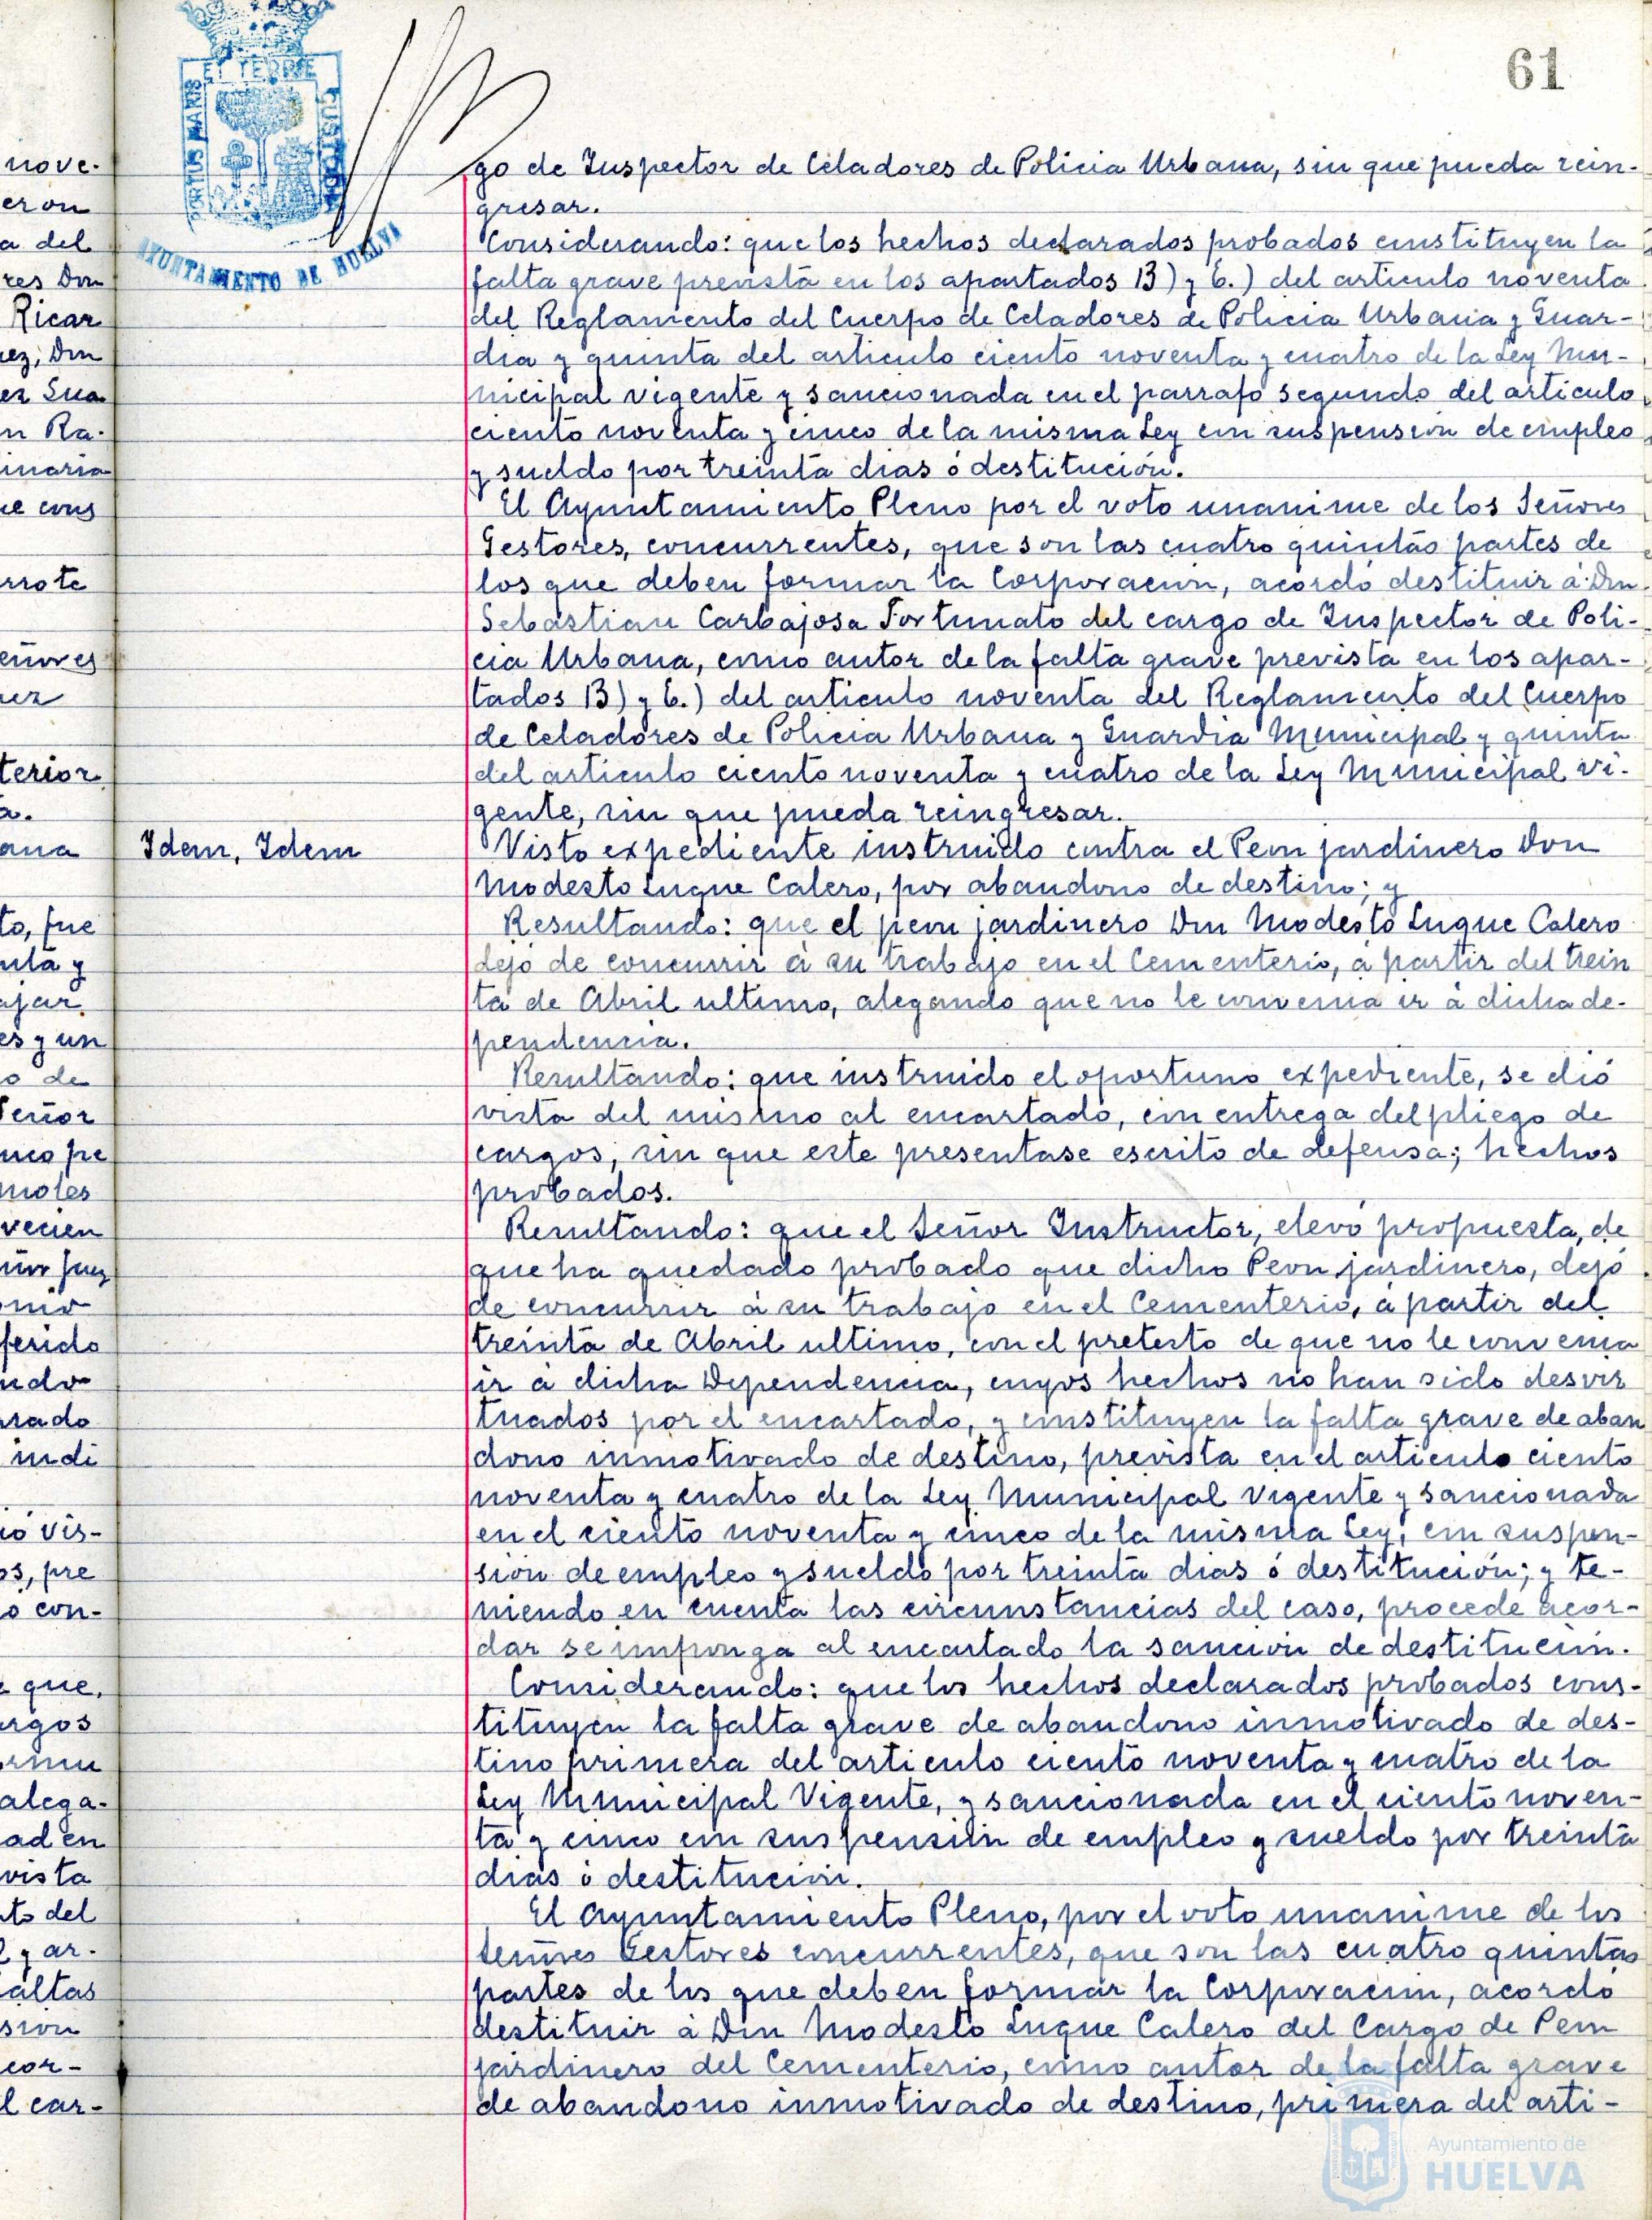 61
EL TERRE
PORTUS MARIS
CUSTODIA
AYUNTAMIENTO DE HUELVA
nove-
eron
a del
res Don
Ricar
uez, Dn
ez Sua
n Ra-
inaria
ue cons
rrote
eñores
uez
terior
a.
ana
to, fue
nta y
ajar
es y un
o de
Señor
nco pe
moles
vecien
ñor Juez
onio
ferido
ndo
rado
indi
ió vis-
os, pre
o con-
e que,
argos
ormu
alega-
ad en
vista
to del
y ar-
faltas
sion
cor-
l car-
go de Inspector de Celadores de Policia Urbana, sin que pueda rein-
gresar.
Considerando: que los hechos declarados probados constituyen la
falta grave prevista en los apartados B) y 6.) del articulo noventa
del Reglamento del Cuerpo de Celadores de Policia Urbana y Guar-
dia y quinta del articulo ciento noventa y cuatro de la Ley Mu-
nicipal vigente y sancionada en el parrafo segundo del articulo
ciento noventa y cinco de la misma Ley con suspension de empleo
y sueldo por treinta dias ó destitución.
El Ayuntamiento Pleno por el voto unanime de los Señores
Gestores, concurrentes, que son las cuatro quintas partes de
los que deben formar la Corporacion, acordó destituir á Don
Sebastian Carbajosa Fortunato del cargo de Inspector de Poli-
cia Urbana, como autor de la falta grave prevista en los apar-
tados B) y 6.) del articulo noventa del Reglamento del Cuerpo
de Celadores de Policia Urbana y Guardia Municipal y quinta
del articulo ciento noventa y cuatro de la Ley Municipal vi-
gente, sin que pueda reingresar.
Idem, Idem
Visto expediente instruido contra el Peon jardinero Don
Modesto Luque Calero, por abandono de destino; y
Resultando: que el peon jardinero Don Modesto Luque Calero
dejó de concurrir á su trabajo en el Cementerio, á partir del trein
ta de Abril ultimo, alegando que no le convenia ir á dicha de-
pendencia.
Resultando: que instruido el oportuno expediente, se dió
vista del mismo al encartado, con entrega del pliego de
cargos, sin que este presentase escrito de defensa; hechos
probados.
Resultando: que el Señor Instructor, elevó propuesta, de
que ha quedado probado que dicho Peon jardinero, dejó
de concurrir á su trabajo en el Cementerio, á partir del
treinta de Abril ultimo, con el pretexto de que no le convenia
ir á dicha Dependencia, cuyos hechos no han sido desvir
tuados por el encartado, y constituyen la falta grave de aban
dono inmotivado de destino, prevista en el articulo ciento
noventa y cuatro de la Ley Municipal Vigente y sancionada
en el ciento noventa y cinco de la misma Ley, con suspen-
sion de empleo y sueldo por treinta dias ó destitución; y te-
niendo en cuenta las circunstancias del caso, procede acor-
dar se imponga al encartado la sancion de destitucion.
Considerando: que los hechos declarados probados cons-
tituyen la falta grave de abandono inmotivado de des-
tino primera del articulo ciento noventa y cuatro de la
Ley Municipal Vigente, y sancionada en el ciento noven-
ta y cinco con suspensión de empleo y sueldo por treinta
dias ó destitucion.
El Ayuntamiento Pleno, por el voto unanime de los
Señores Gestores concurrentes, que son las cuatro quintas
partes de los que deben formar la Corporacion, acordó
destituir á Don Modesto Luque Calero del Cargo de Peon
jardinero del Cementerio, como autor de la falta grave
de abandono inmotivado de destino, primera del arti-
Ayuntamiento de
HUELVA